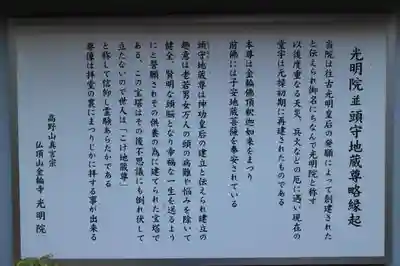 光明院並頭守地蔵尊略縁起
当院は往古光明皇后の発願によって創建された
と伝えられ御名にちなんで光明院と称す
以後度重なる天災、兵火などの厄に遇い現在の
堂宇は元禄初期に再建されたものである
本尊は金輪佛頂釈迦如来をまつり
前佛には子安地蔵菩薩を奉安されている
頭守地蔵尊は神功皇后の建立と伝えられ建立の
趣意は老若男女万人の頭の病難や悩みを除いて
健全、賢明な頭脳となり幸福な一生を送るよう
にと誓願されその供養の為に建てられた宝塔で
ある、この宝塔はその後不思議にも倒れ伏して
立たないので世人は「こけ地蔵尊」
と称して信仰し霊験あらたかである
尊像は拝堂の裏にまつりじかに拝する事が出来る
高野山真言宗
仏頂山金輪寺 光明院